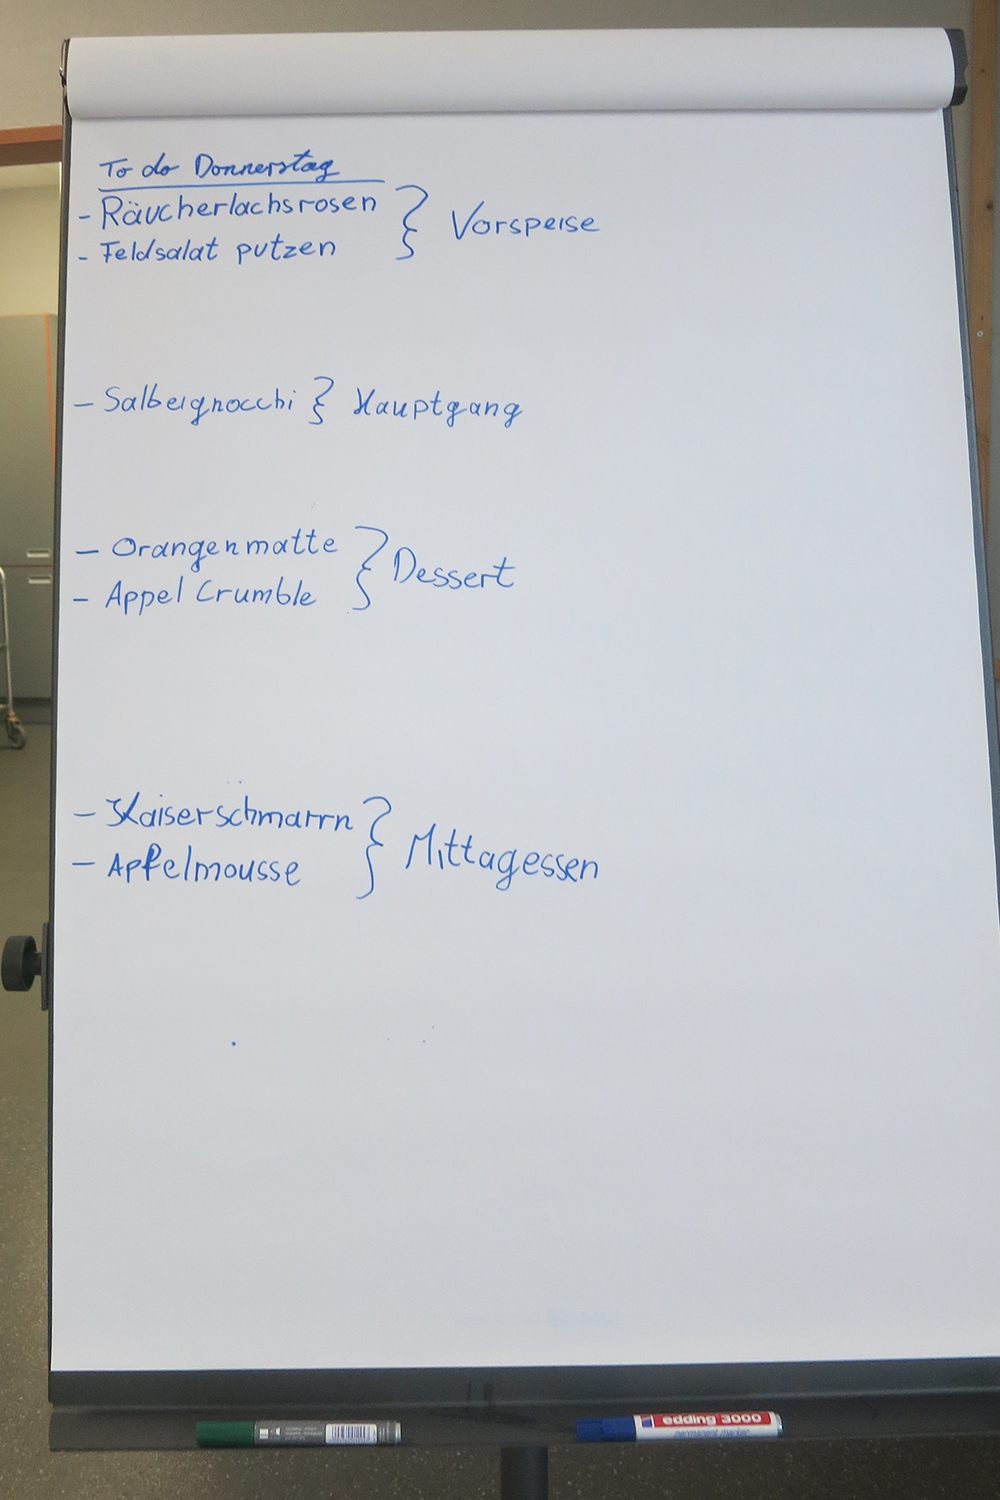 To do Donnerstag
- Räucherlachsrosen } Vorspeise
- Feldsalat putzen
- Salbeignocchi } Hauptgang
- Orangenmatte } Dessert
- Appel Crumble
- Kaiserschmarrn } Mittagessen
- Apfelmousse
edding 3000
permanent marker